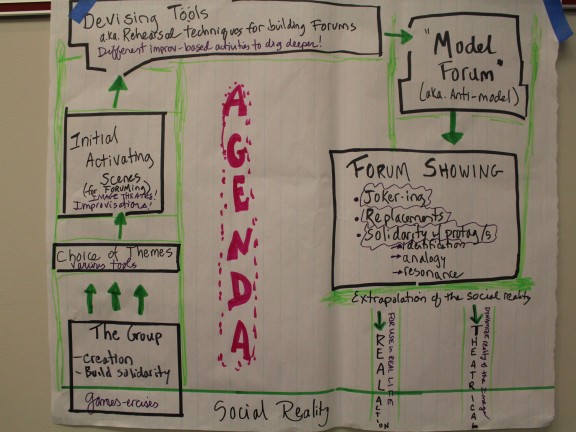 Devising Tools
a.k.a. Rehearsal techniques for building Forums
Different improv-based activities to dig deeper!
"Model
Forum"
(aka. Anti-model)
Initial
Activating
Scenes
(for FORUMing)
IMAGE THEATRE!
Improvisations!
AGENDA
FORUM SHOWING
• Joker-ing
• Replacements
• Solidarity w/ protag/s
→ identification
→ analogy
→ resonance
Choice of Themes
various tools
Extrapolation of the social reality
The Group
- Creation
- Build solidarity
Games-ercises
REAL ACTION
FOR USE IN REAL LIFE
THEATRICAL
reality of the image
Social Reality